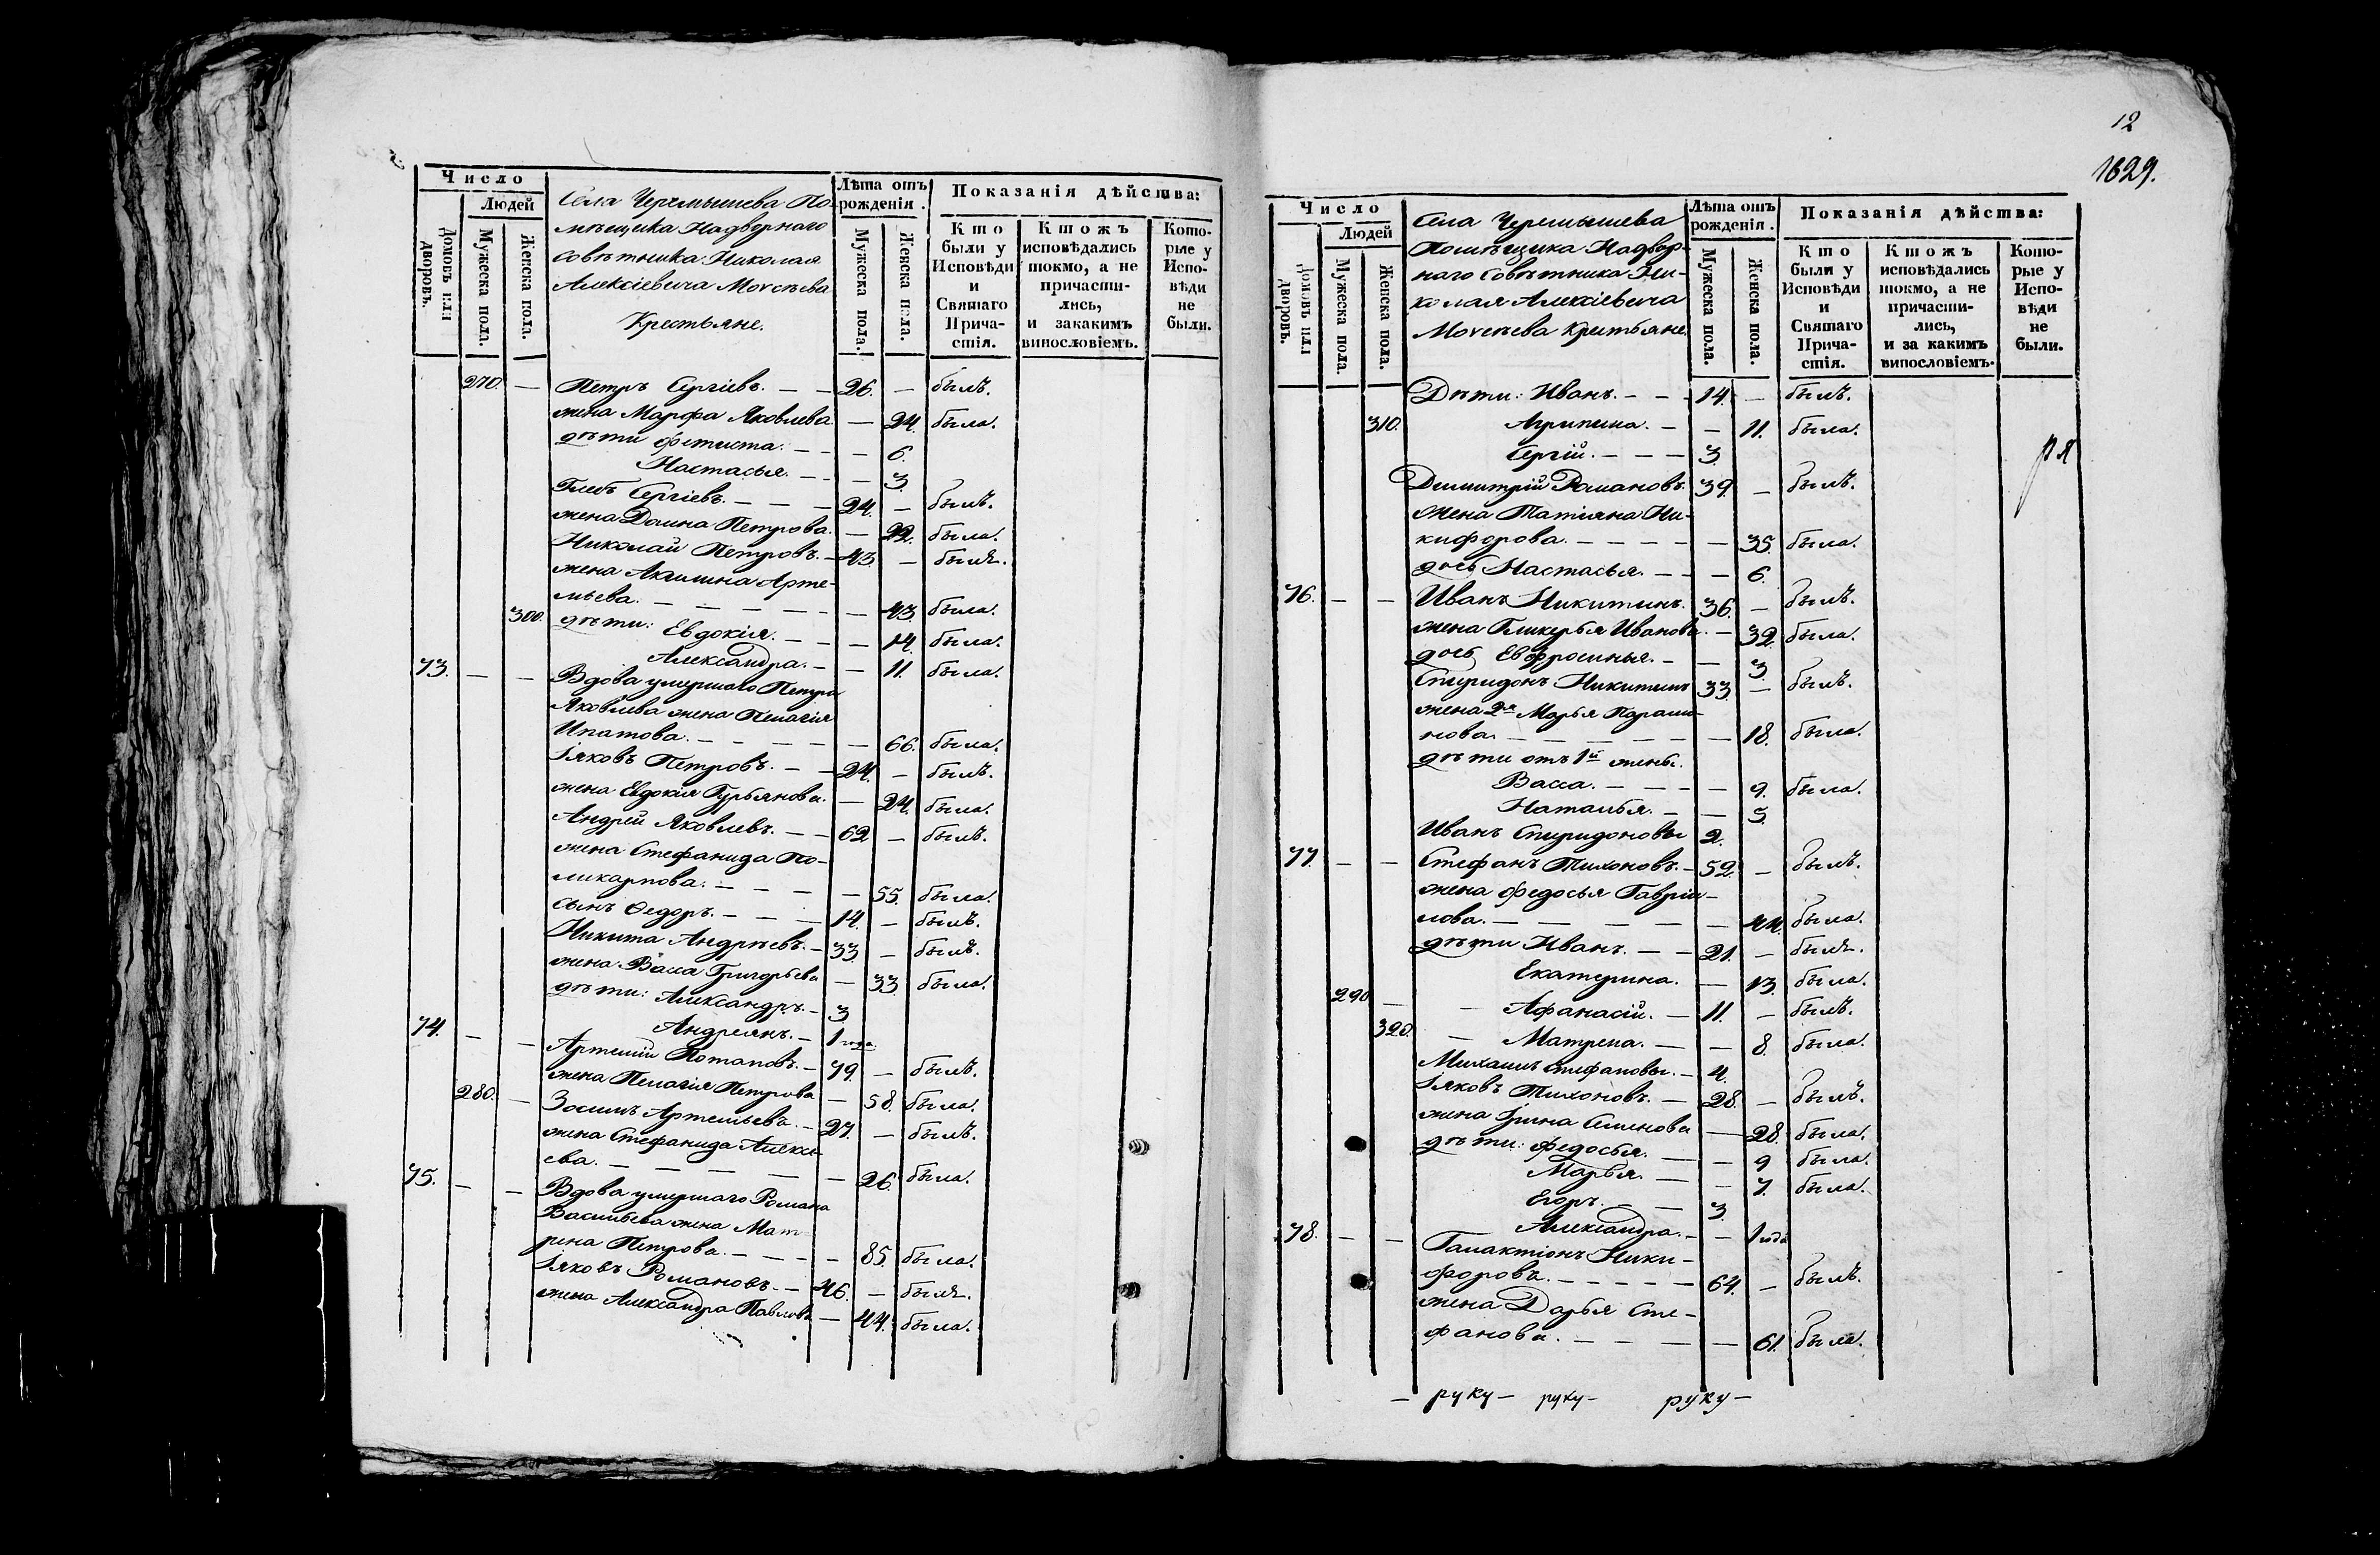 12
1829.
Число
Людей
Домовъ или дворовъ.
Мужеска пола.
Женска пола.
Села Черемышева По-
мѣщика Надворнаго
Совѣтника Николая
Алексіевича Мосѣева
Крестьяне.
Лѣта отъ рожденія.
Мужеска пола.
Женска пола.
Показанія дѣйства:
Кто были у Исповѣди и Святаго Прича-стія.
Ктожъ исповѣдались токмо, а не причасти-лись, и закакимъ винословіемъ.
Кото-рые у Испо-вѣди не были.
270. — Петръ Сергіевъ. — — 26. — былъ.
жена Марфа Яковлева. — 24. была.
дѣти Фетиста. — — — 6.
Настасья. — — — 3.
Глебъ Сергіевъ. — — — 24. — былъ.
жена Домна Петрова. — 22. была.
Николай Петровъ. — 43. — былъ.
жена Акилина Арте-
мьева. — — — — — 43. была.
300. дѣти: Евдокія. — — — 14. была.
Александра. — — 11. была.
73. — — Вдова умершаго Петра
Яковлева жена Пелагія
Ипатова. — — — — — 66. была.
Іяковъ Петровъ. — — 24. — былъ.
жена Евдокія Гурьянова. — 24. была.
Андрей Яковлевъ. — — 62 — былъ.
жена Стефанида По-
ликарпова. — — — — 55. была.
сынъ Ѳедоръ. — — — 14. — былъ.
Никита Андрѣевъ. — 33. — былъ.
жена Васса Григорьева — 33. была.
дѣти: Александръ. — 3
Андреянъ. — 1 года.
74. — — Артемій Потаповъ. — 79. — былъ.
жена Пелагія Петрова — 58. была.
280. — Зосимъ Артемьевъ. — 27. — былъ.
жена Стефанида Алекси-
ева. — — — — — 26. была.
75. — — Вдова умершаго Романа
Васильева жена Мат-
рена Петрова. — — — — 85. была.
Іяковъ Романовъ. — 46. — былъ.
жена Александра Павлова — 44. была.
Число
Людей
Домовъ или дворовъ.
Мужеска пола.
Женска пола.
Села Черемышева
Помѣщика Надвор-
наго Совѣтника Ни-
колая Алексіевича
Мосѣева Крестьяне.
Лѣта отъ рожденія.
Мужеска пола.
Женска пола.
Показанія дѣйства:
Кто были у Исповѣди и Святаго Прича-стія.
Ктожъ исповѣдались токмо, а не причасти-лись, и за какимъ винословіемъ.
Кото-рые у Испо-вѣди не были.
Дѣти: Иванъ. — — — 14. — былъ.
310. Агрипина. — — 11. была.
Сергій. — — — 3.
Димитрій Романовъ. 39. — былъ.
жена Татіяна Ни-
кифорова. — — — — — 35. была.
дочь Настасья. — — — 6.
76. — — Иванъ Никитинъ. 36. — былъ.
жена Гликерья Иванова. — 32. была.
дочь Евфросинья. — — 3.
Спиридонъ Никитинъ 33. — былъ.
жена 2я Марья Парамо-
нова. — — — — — — 18. была.
дѣти отъ 1й жены.
Васса. — — — — 9. была.
Наталья. — — 5.
Иванъ Спиридоновы 2.
77. — — Стефанъ Тихоновъ. — 52. — былъ.
жена Федосья Гаврии-
лова. — — — — — 44. была.
дѣти Иванъ. — — 21. — былъ.
Екатерина. — 13. была.
290 — — Афанасій. — 11. — былъ.
320. — Матрена. — — 8. была.
Михаилъ Стефановы. — 4.
Іяковъ Тихоновъ. — 28. — былъ.
жена Ірина Семенова — 28. была.
дѣти: Федосья. — — 9 была.
Марья. — — 7. была.
Егоръ. — — 3.
Александра. — — 1 года
78. — — Галактіонъ Ники-
форовъ. — — — — — 64. — былъ.
жена Дарья Сте-
фанова. — — — — 61. была.
— руку — руку — руку —